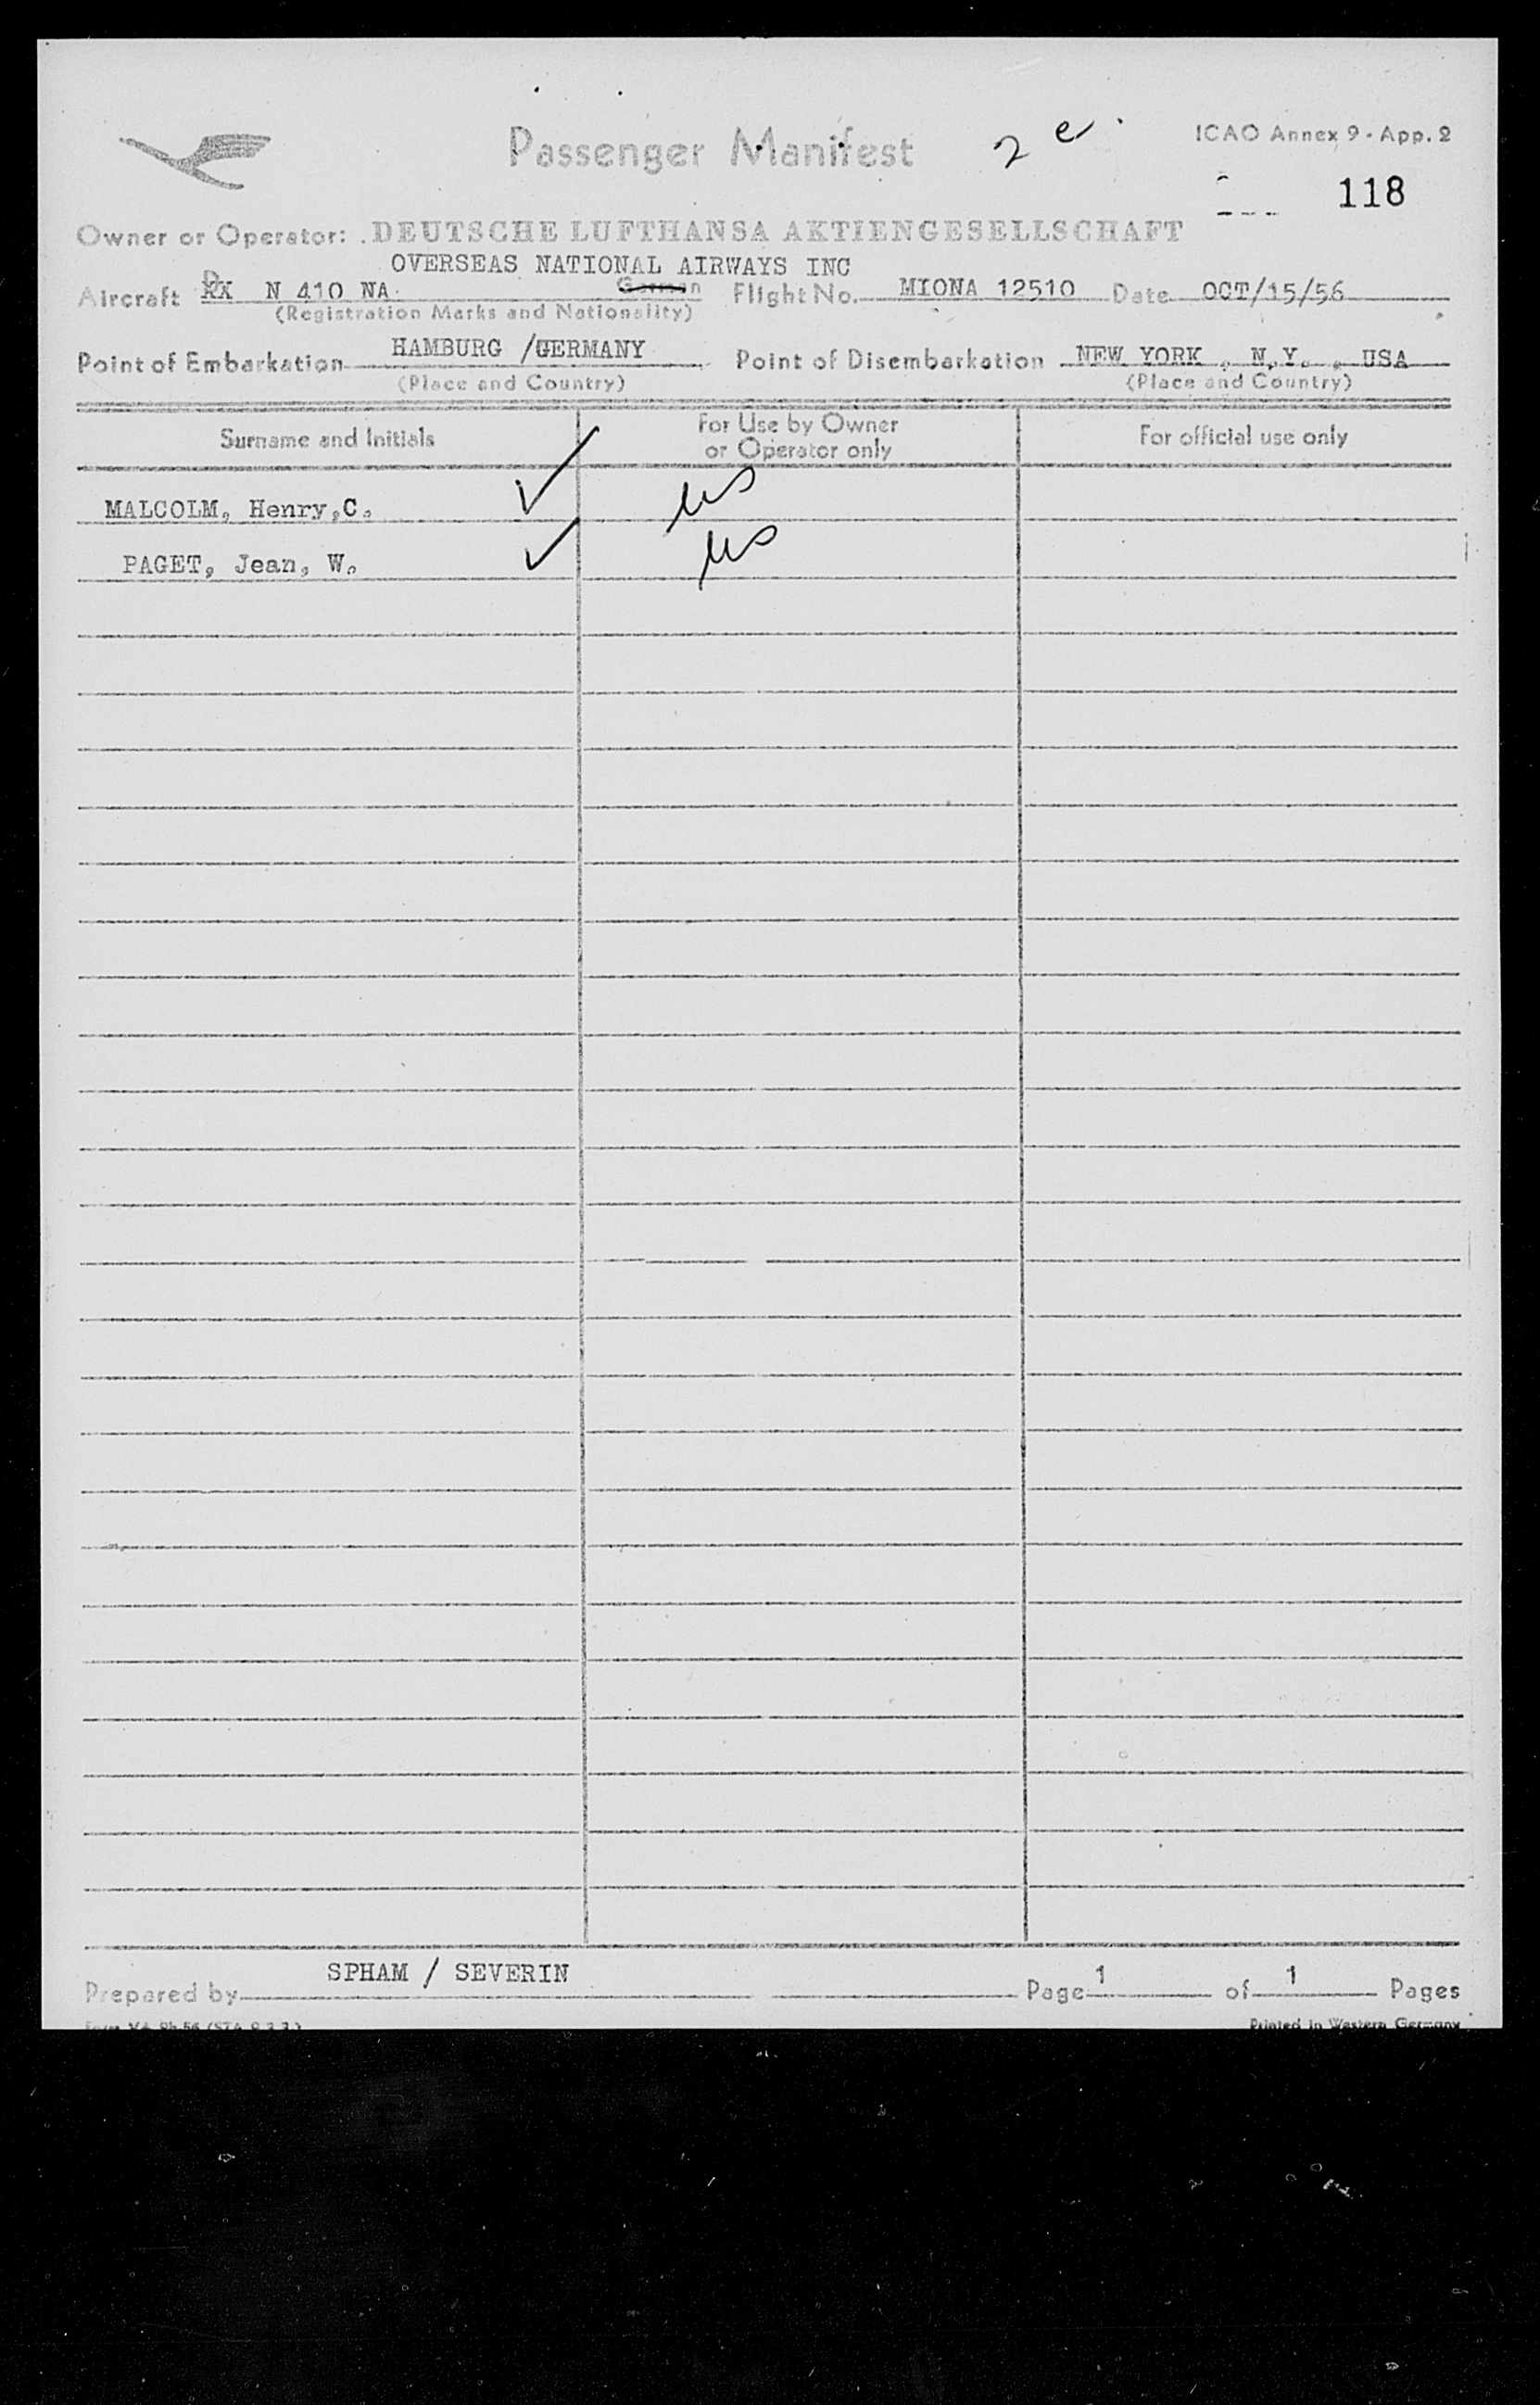 Passenger Manifest 2 e
ICAO Annex 9 - App. 2
118
Owner or Operator: DEUTSCHE LUFTHANSA AKTIENGESELLSCHAFT
OVERSEAS NATIONAL AIRWAYS INC
Aircraft N 410 NA German Flight No. MIONA 12510 Date OCT/15/56
(Registration Marks and Nationality)
Point of Embarkation HAMBURG /GERMANY Point of Disembarkation NEW YORK , N.Y. , USA
(Place and Country) (Place and Country)
Surname and Initials For Use by Owner or Operator only For official use only
MALCOLM, Henry,C. us
PAGET, Jean, W. us
Prepared by SPHAM / SEVERIN Page 1 of 1 Pages
Printed in Western Germany